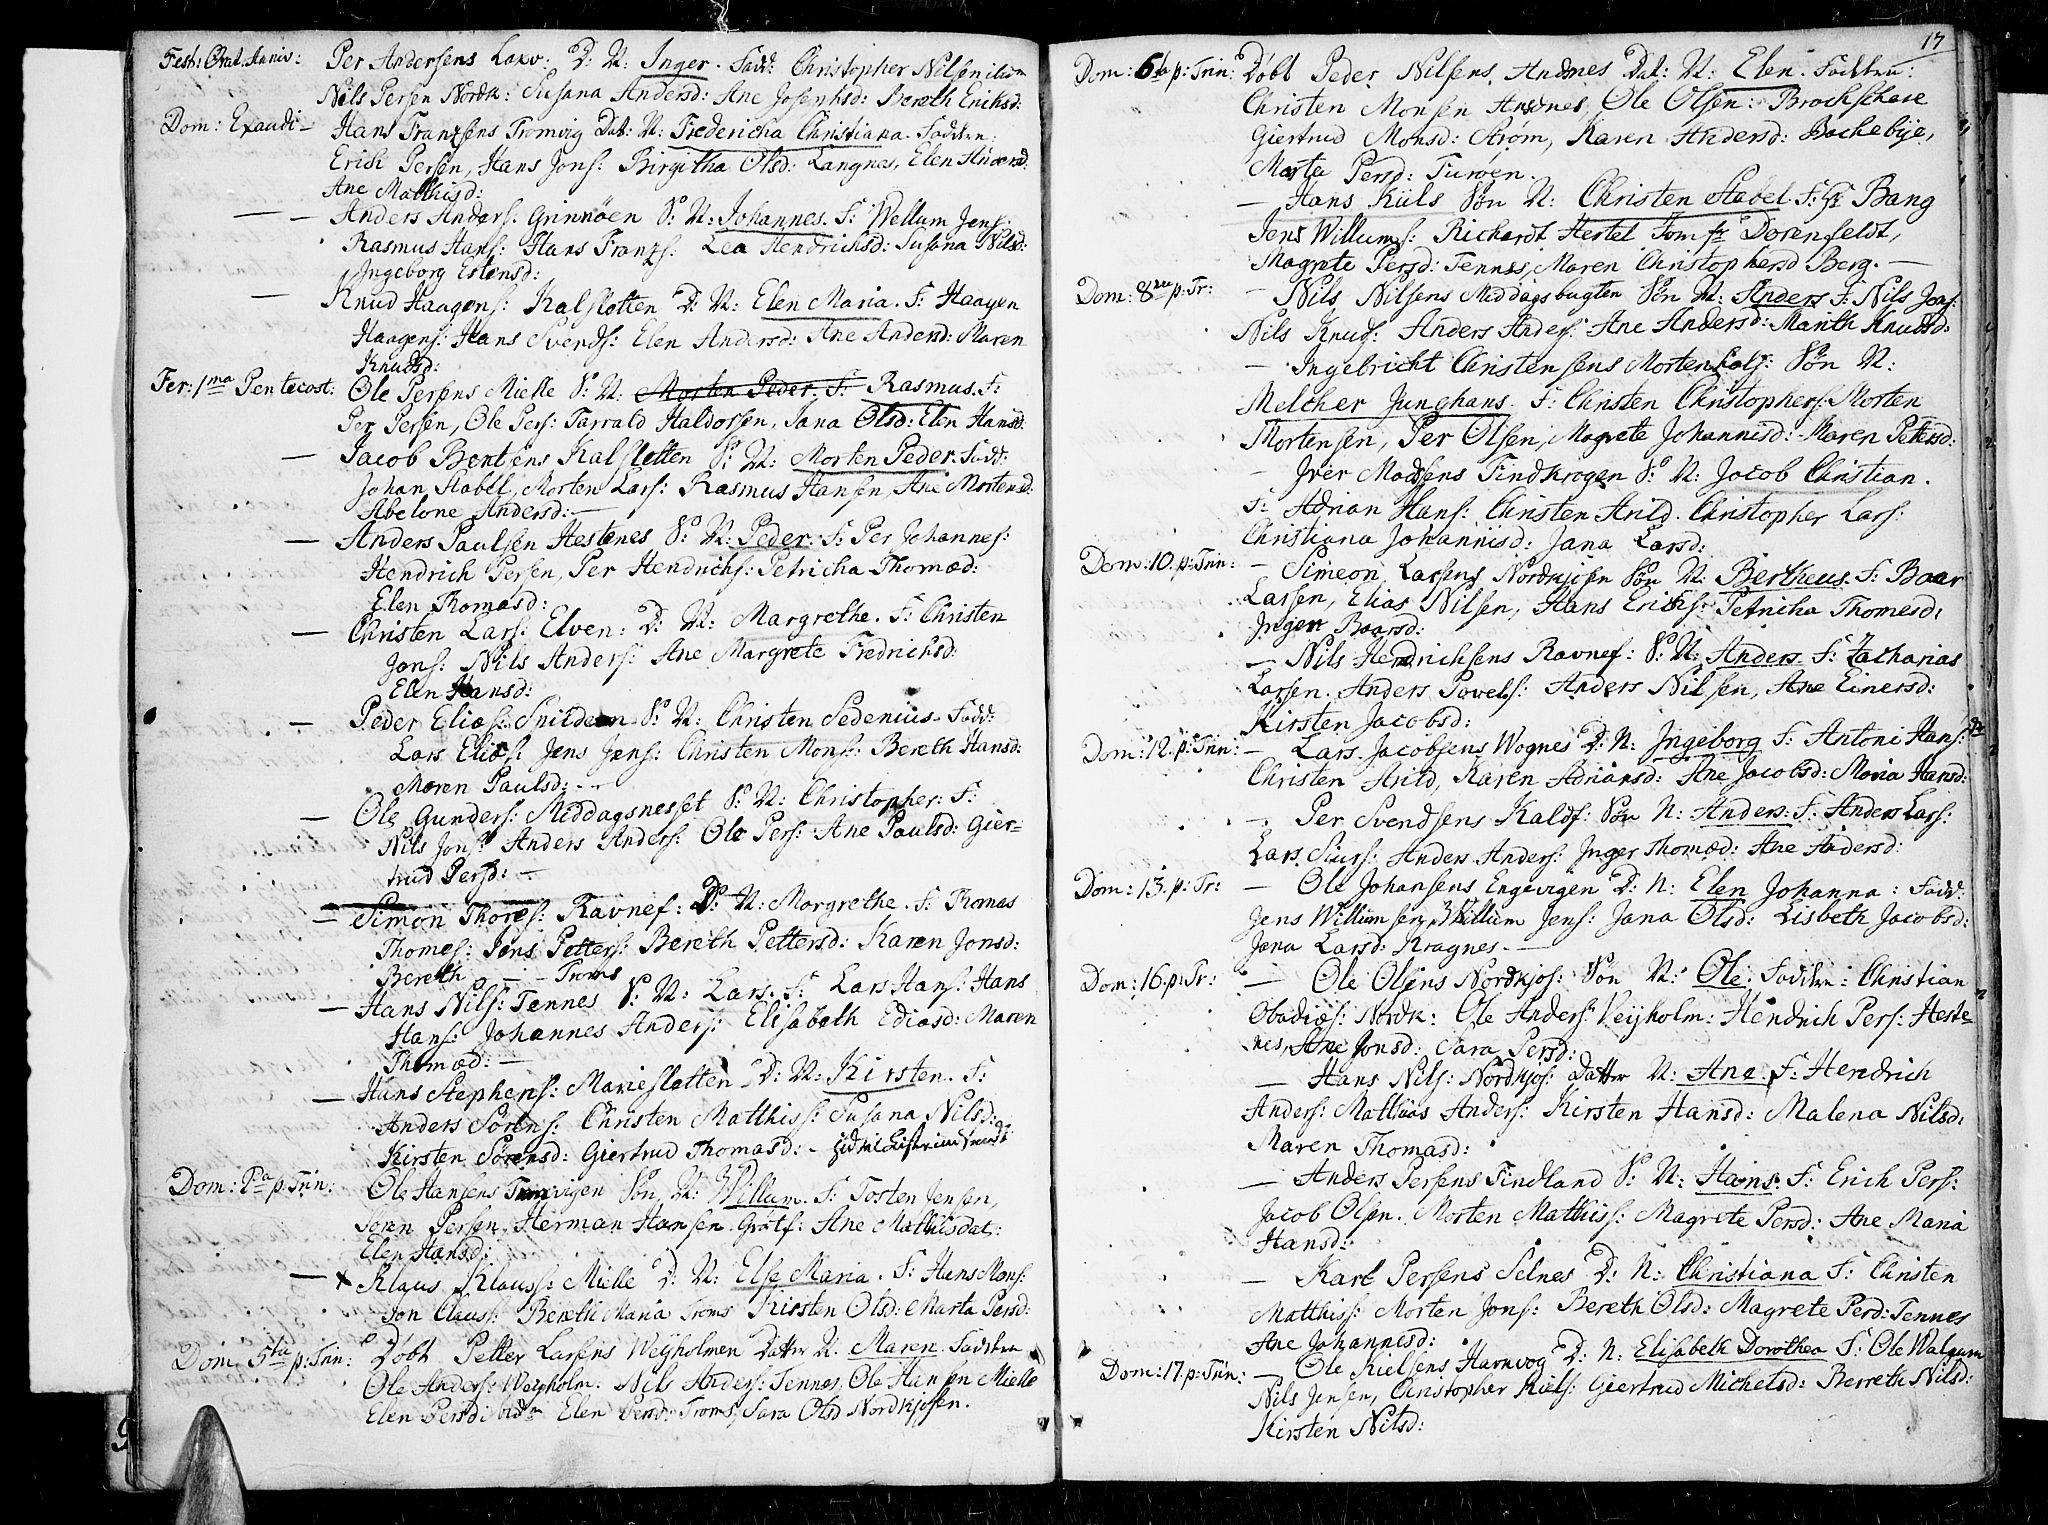 Fest: Orat. Aniv: Per Andersens Laxv: D: N: Inger. Fadd: Christopher Nilsen
Nils Persen Nordk: Susana Andersd: Ane Josephsd: Bereth Eriksd:
Dom: Exaudi — Hans Franzens Tromvig Dat: N: Fredericha Christiana. Fadderr:
Erich Persen, Hans Jons: Birgitha Olsd: Langnes, Elen
Ane Mathisd:
— — Anders Anders: Grinnöen S: N: Johannes. F: Wellum Jens:
Rasmus Hans: Hans Franzs: Lea Hendrichsd: Susana Nilsd:
Ingeborg Estensd:
— Knud Haagens: Kalsletten D: N: Elen Maria. F: Haagen
Haagens: Hans Svends: Elen Andersd: Ane Andersd: Maren
Knudsd:
Fer: 1ma Pentecost: Ole Persens Mielle S: N: Morten Peder. F: Rasmus. F:
Per Persen, Ole Pers: Tarrald Haldorsen, Jana Olsd: Elen Hansd:
— Jacob Bentsens Kalsletten S: N: Morten Peder. Fadd:
Johan Habel, Morten Lars: Rasmus Hansen, Ane Mortensd:
Abelone Andersd: —
— Anders Paulsen Hestenes S: N: Peder. F: Per Johannes:
Hendrich Persen, Per Hendrichs: Petricha Thomæd:
Elen Thomasd:
— Christen Lars: Elven: D: N: Margrethe. F: Christen
Jons: Nils Anders: Ane Margrete Fredrichsd:
Elen Hansd:
— Peder Elias: Snildeen S: N: Christen Sedenius. Fadd:
Lars Elias: Jens Jens: Christen Mons: Bereth Hansd:
Maren Paulsd: —
— Ole Gunders: Middagsnesset S: N: Christopher: F:
Nils Jons: Anders Anders: Ole Pers: Ane Paulsd: Gier-
trud Persd: —
— Simon Thores: Ravnef: D: N: Margrethe. F: Thomas
Thomes: Jens Petters: Bereth Pettersd: Karen Jonsd:
Bereth — — Troms
— Hans Nils: Tennes S: N: Lars. F: Lars Hans: Hans
Hans: Johannes Anders: Elisabeth Ediasd: Maren
Thomæd: —
— Hans Stephens: Mariesletten D: N: Kirsten. F:
Anders Sörens: Christen Matthiss: Susana Nilsd:
Kirsten Sörensd: Giertrud Thomasd: —
Dom: 1a p: Trin: Ole Hansens Tromvigen Sön N: Willum. F: Tosten Jensen,
Sören Persen, Herman Hansen Grötf: Ane Mathisdat:
Elen Hansd:
— x Klaus Klauss: Mielle D: N: Else Maria. F: Hans Mons:
Jon Clauss: Bereth Maria Troms Kirsten Olsd: Marta Persd:
Dom 5ta p: Trin: Döbt Petter Larsens Weyholmen Datter N: Maren. Fadderr
Ole Anders: Weyholm. Nils Anders: Tennes, Ole Hansen Mielle
Elen Persd: Elen Persd: Troms, Sara Olsd Nordkjosen.
17
Dom: 6ta p: Trin: Döbt Peder Nilsens Andnes Dat: N: Elen. Fadderr:
Christen Monsen Andnes, Ole Olsen: Brochschere
Giertrud Monsd: Strøm, Karen Andersd: Bachebye,
Marta Persd: Turøen.
— Hans Kiils Sön N: Christen Stabel. F: Hr Bang
Jens Willums: Richardt Hertel Jomfr Dorenfeldt,
Magrete Persd: Tennes, Maren Christophersd Berg. —
Dom: 8va p: Tr: — Nils Nilsens Middagsbugten Sön N: Anders F: Nils Jons:
Nils Knuds: Anders Anders: Ane Andersd: Marith Knudsd:
— Ingebricht Christensens Mortenhals: Sön N:
Melcher Junghans. F: Christen Christophers: Morten
Mortensen, Per Olsen, Magrete Johannisd: Maren Petersd:
— Iver Madsens Findkrogen S: N: Jacob Christian.
F: Adrian Hans: Christen Arild. Christopher Lars:
Christiana Johannisd: Jana Larsd:
Dom: 10. p: Trin: — Simeon Larsens Nordkjosen Sön N: Bertheus. F: Baar
Larsen, Elias Nilsen, Hans Erichs: Petricha Thomesd:
Inger Baarsd:
— Nils Hendrichsens Ravnef: S: N: Anders F: Zacharias
Larsen. Anders Povels: Anders Nilsen, Ane Einersd:
Kirsten Jacobsd:
Dom: 12. p: Trin: — Lars Jacobsens Wognes D: N: Ingeborg F: Antoni Hans:
Christen Arild, Karen Adriansd: Ane Jacobsd: Maria Hansd:
— Per Svendsens Kaldf: Sön N: Anders: F: Anders Lars:
Lars Siurs: Anders Anders: Inger Thomæd: Ane Andersd:
Dom: 13. p: Tr: — Ole Johansens Engevigen D: N: Elen Johanna: Fadd:
Jens Willumsen, Willum Jens: Jana Olsd: Lisbeth Jacobsd:
Jana Larsd: Kragnes. —
Dom: 16. p: Tr: — Ole Olsens Nordkjos: Sön N: Ole. Fadderr: Christian
Obadiæs: Nordk: Ole Anders: Veyholm: Hendrich Pers: Heste-
nes, Ane Jonsd: Sara Persd:
— Hans Nils: Nordkjos: Datter N: Ane F: Hendrich
Anders: Mathias Anders: Kirsten Hansd: Malena Nilsd:
Maren Thomasd:
— Anders Persens Findland S: N: Hans. F: Erich Pers:
Jacob Olsen. Morten Mathiss: Magrete Persd: Ane Maria
Hansd:
— Karl Persens Selnes D: N: Christiana F: Christen
Matthiss: Morten Jons: Bereth Olsd: Magrete Perd: Tennes
Ane Johannisd:
Dom: 17. p: Trin: — Ole Kielsens Hamvog D: N: Elisabeth Dorothea F: Ole Walgum
Nils Jensen, Christopher Kiels: Giertrud Michelsd: Berreth Nilsd:
Kirsten Nilsd: